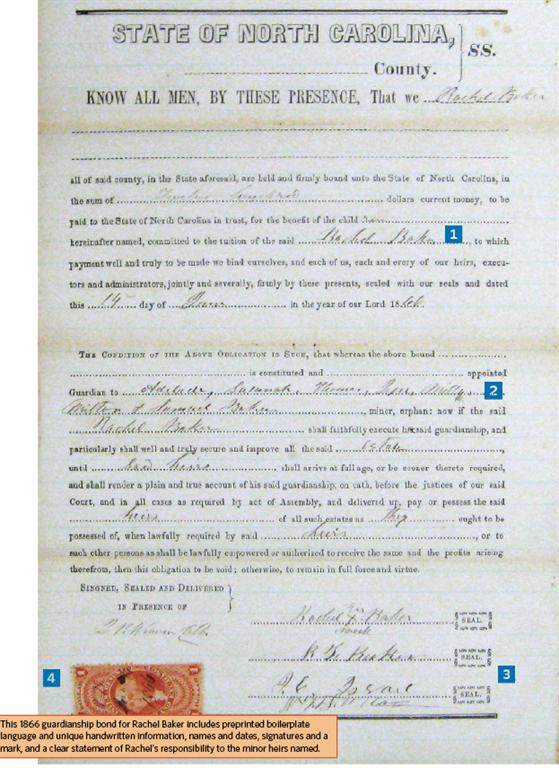 STATE OF NORTH CAROLINA,
SS.
County.
KNOW ALL MEN, BY THESE PRESENCE, That we Rachel Baker
all of said county, in the State aforesaid, are held and firmly bound unto the State of North Carolina, in
the sum of dollars current money, to be
paid to the State of North Carolina in trust, for the benefit of the child
hereinafter named, committed to the tuition of the said Rachel Baker 1, to which
payment well and truly to be made we bind ourselves, and each of us, each and every of our heirs, execu-
tors and administrators, jointly and severally, firmly by these presents, sealed with our seals and dated
this day of in the year of our Lord 1866.
THE CONDITION OF THE ABOVE OBLIGATION IS SUCH, that whereas the above bound
is constituted and appointed
Guardian to Savannah, Thomas, Milly 2
Milton of Samuel Baker, minor, orphan: now if the said
Rachel Baker shall faithfully execute his said guardianship, and
particularly shall well and truly secure and improve all the said estate,
until said heirs shall arrive at full age, or be sooner thereto required,
and shall render a plain and true account of his said guardianship, on oath, before the justices of our said
Court, and in all cases as required by act of Assembly, and delivered up, pay or possess the said
heirs of all such estates as they ought to be
possessed of, when lawfully required by said heirs, or to
such other persons as shall be lawfully empowered or authorized to receive the same and the profits arising
therefrom, then this obligation to be void; otherwise, to remain in full force and virtue.
SIGNED, SEALED AND DELIVERED
IN PRESENCE OF
Rachel Baker SEAL.
mark
SEAL.
3
SEAL.
4
This 1866 guardianship bond for Rachel Baker includes preprinted boilerplate
language and unique handwritten information, names and dates, signatures and a
mark, and a clear statement of Rachel's responsibility to the minor heirs named.